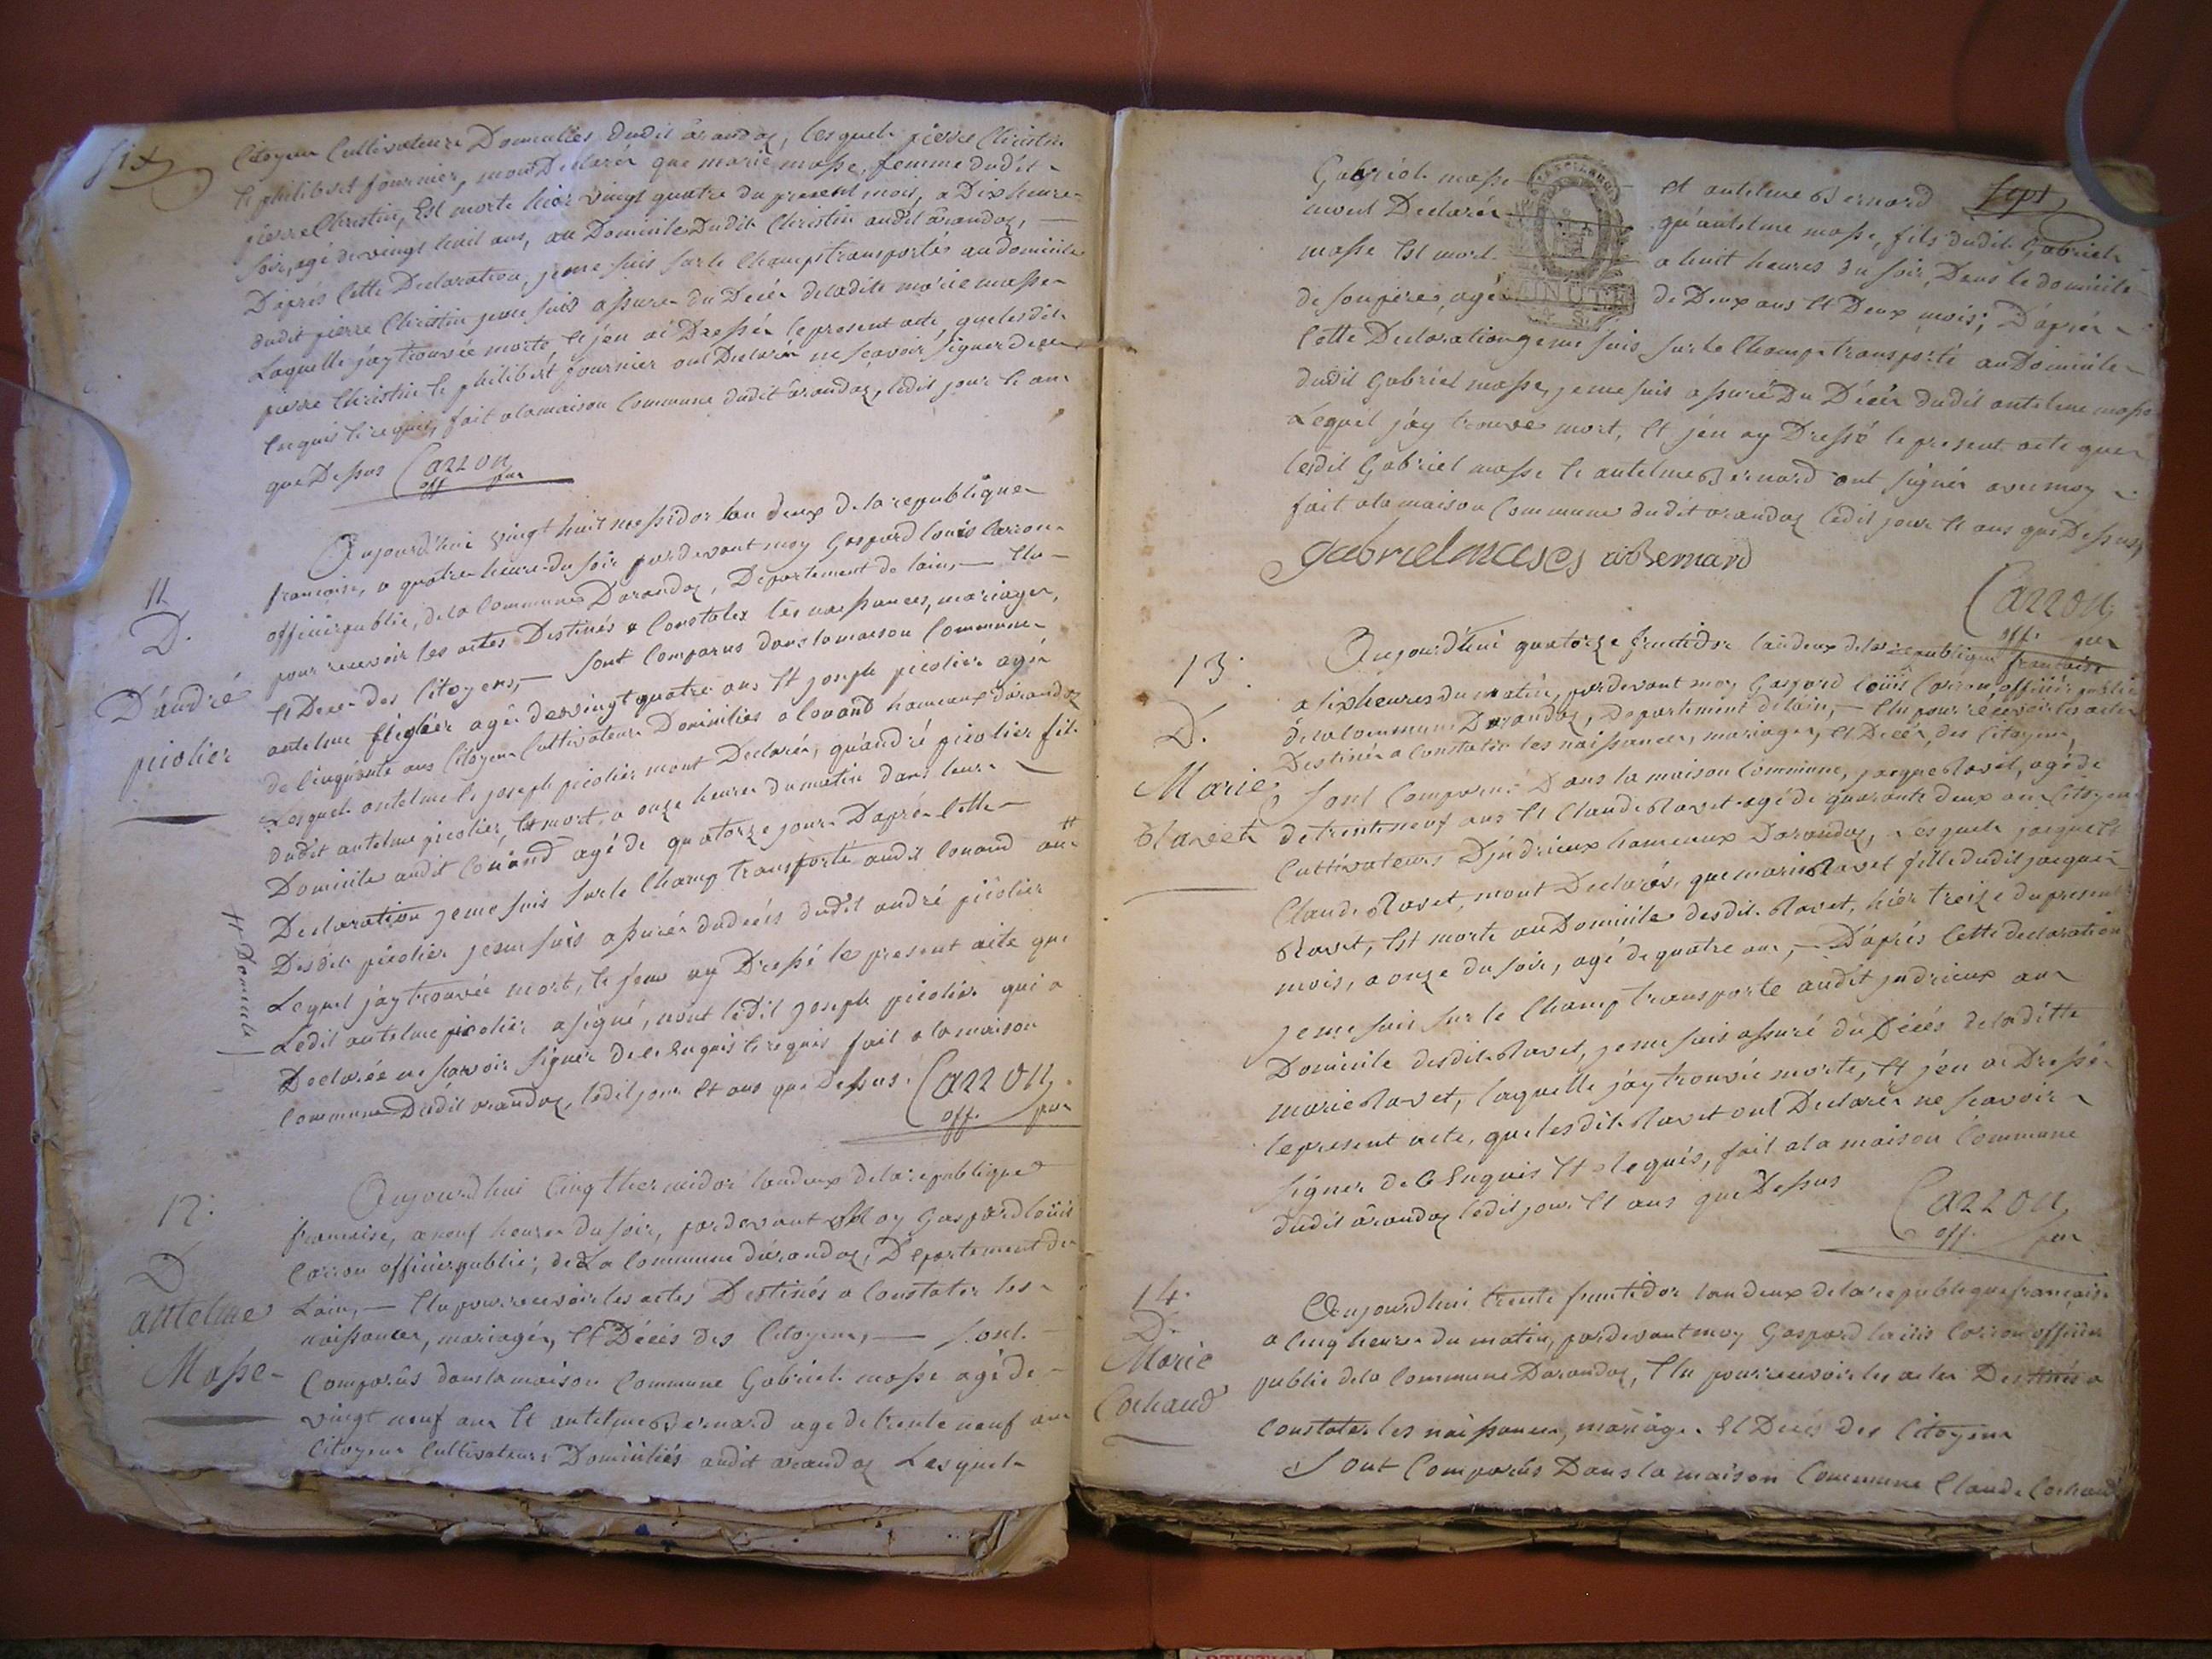 six
Citoyens Cultivateurs Domiciliés dudit arandaz, lesquels pierre Christin
et philibert fournier, mont Declarés que marie masse, femme dudit
pierre Christin, Est morte hier vingt quatre du present mois, a Dix heures
soir, agé de vingt huit ans, au Domicile Dudit Christin audit arandaz, —
D'aprés Cette Declaration, je me suis sur le Champ transporté au domicile
dudit pierre Christin je me suis assurer du Decés de ladite marie masse
Laquelle jay trouvée morte et jen ai Dressér le present acte, que lesdits
pierre Christin et philibert fournier ont Declarér ne sçavoir signer de ce
Enquis et requis, fait a la maison Commune dudit arandaz, ledit jour et an
que Dessus Carron
off pur
11
D.
D'andré
picolier
Aujourd'hui vingt huit messidor lan deux de la republique
francoise, a quatre heure du soir pardevant moy Gaspard louis Carron
officier public, de la Commune Darandaz, Departement de lain, — Elu
pour recevoir les actes Destinés a Constater les naissances, mariages,
et Deces des Citoyens, — sont Comparus dans la maison Commune
antelme agé de vingt quatre ans Et joseph picolier agé
de Cinquante ans Citoyens Cultivateurs Domiciliés a lovand hameaux darandaz
Lesquels antelme et joseph picolier mont Declarés, qu'andré picolier fils
dudit antelme picolier, Est mort a onze heures du matin dans leur
Domicile audit lovand agé de quatorze jours D'aprés Cette
Declaration je me suis sur le Champ transporté audit lovand au #
# Domicile
Desdits picolier je me suis assurér du decés dudit andré picolier
Lequel jay trouvée mort, et jen ay Dressé le present acte que
Ledit antelme picolier a signé, nont ledit joseph picolier qui a
Declarée ne scavoir signer de Ce Enquis et requis fait a la maison
Commune Dudit arandaz, ledit jour Et ans que Dessus. Carron
off. pur
12.
D
antelme
Masse
Aujourd'hui Cinq thermidor lan deux de la republique
francoise, a neuf heures du soir, pardevant Moy Gaspard louis
Carron officier public, de La Commune darandaz, Departement de
Lain, — Elu pour recevoir les actes Destinés a Constater les
naissances, mariagés, Et Décés des Citoyens, — sont
Comparûs dans la maison Commune Gabriel masse agé de
vingt neuf ans Et antelme Bernard age de trente neuf ans
Citoyens Cultivateurs Domiciliés audit arandaz Lesquels
sept
Gabriel masse et antelme Bernard
mont Declarés qu'antelme masse, fils dudit Gabriel
masse Est mort a huit heures du soir, Dans le domicile
de son pere, agé de Deux ans Et Deux mois; D'aprés
MINUTE
4 S.
Cette Declaration je me suis sur le Champ transporté au Domicile
dudit Gabriel masse, je me suis assuré Du Décés dudit antelme masse
Lequel j'ay trouvé mort, Et jen ay Dressé le present acte que
lesdit Gabriel masse et antelme Bernard ont signés avec moy
fait a la maison Commune dudit arandaz ledit jour Et ans que Dessus,
gabriel mases a Bernard
Carron
off. pur
13.
D.
Marie
Ravet
Aujourd'hui quatorze fructidor lan deux de la republique francaise
a six heures du matin, pardevant moy Gaspard louis Carron, officier public
de la Commune Darandaz, Departement de lain, — Elu pour recevoir les actes
Destinés a Constater les naissances, mariages, Et Décés, des Citoyens,
sont Comparus Dans la maison Commune, jacque Ravet, agé de
de trente neuf ans Et Claude Ravet agé de quarante deux ans Citoyens
Cultivateurs D'jndrieux hameaux Darandaz, Lesquels jacque Et
Claude Ravet, mont Declarés, que marie Ravet fille dudit jacque
Ravet, Est morte au Domicile desdits Ravet, hiér treize du present
mois, a onze du soir, agé de quatre ans, — D'aprés Cette declaration
je me suis sur le Champ transporte audit jndrieux au
Domicile desdits Ravet, je me suis assuré du Décés de laditte
marie Ravet, laquelle j'ay trouvée morte, Et j'en ai Dressé
le present acte, que lesdits Ravet ont Declarér ne scavoir
signer de Ce Enquis Et Requis, fait a la maison Commune
dudit arandaz ledit jour Et ans que Dessus Carron
off. pur
14.
D.
Marie
Cochaud
Aujourd'hui trente fructidor lan deux de la republique française
a Cinq heures du matin, pardevant moy Gaspard louis Carron officier
public de la Commune Darandaz, Elu pour recevoir les actes Destinés a
Constater les naissances, mariages Et Decés des Citoyens
sont Comparûs Dans la maison Commune Claude Cochaud